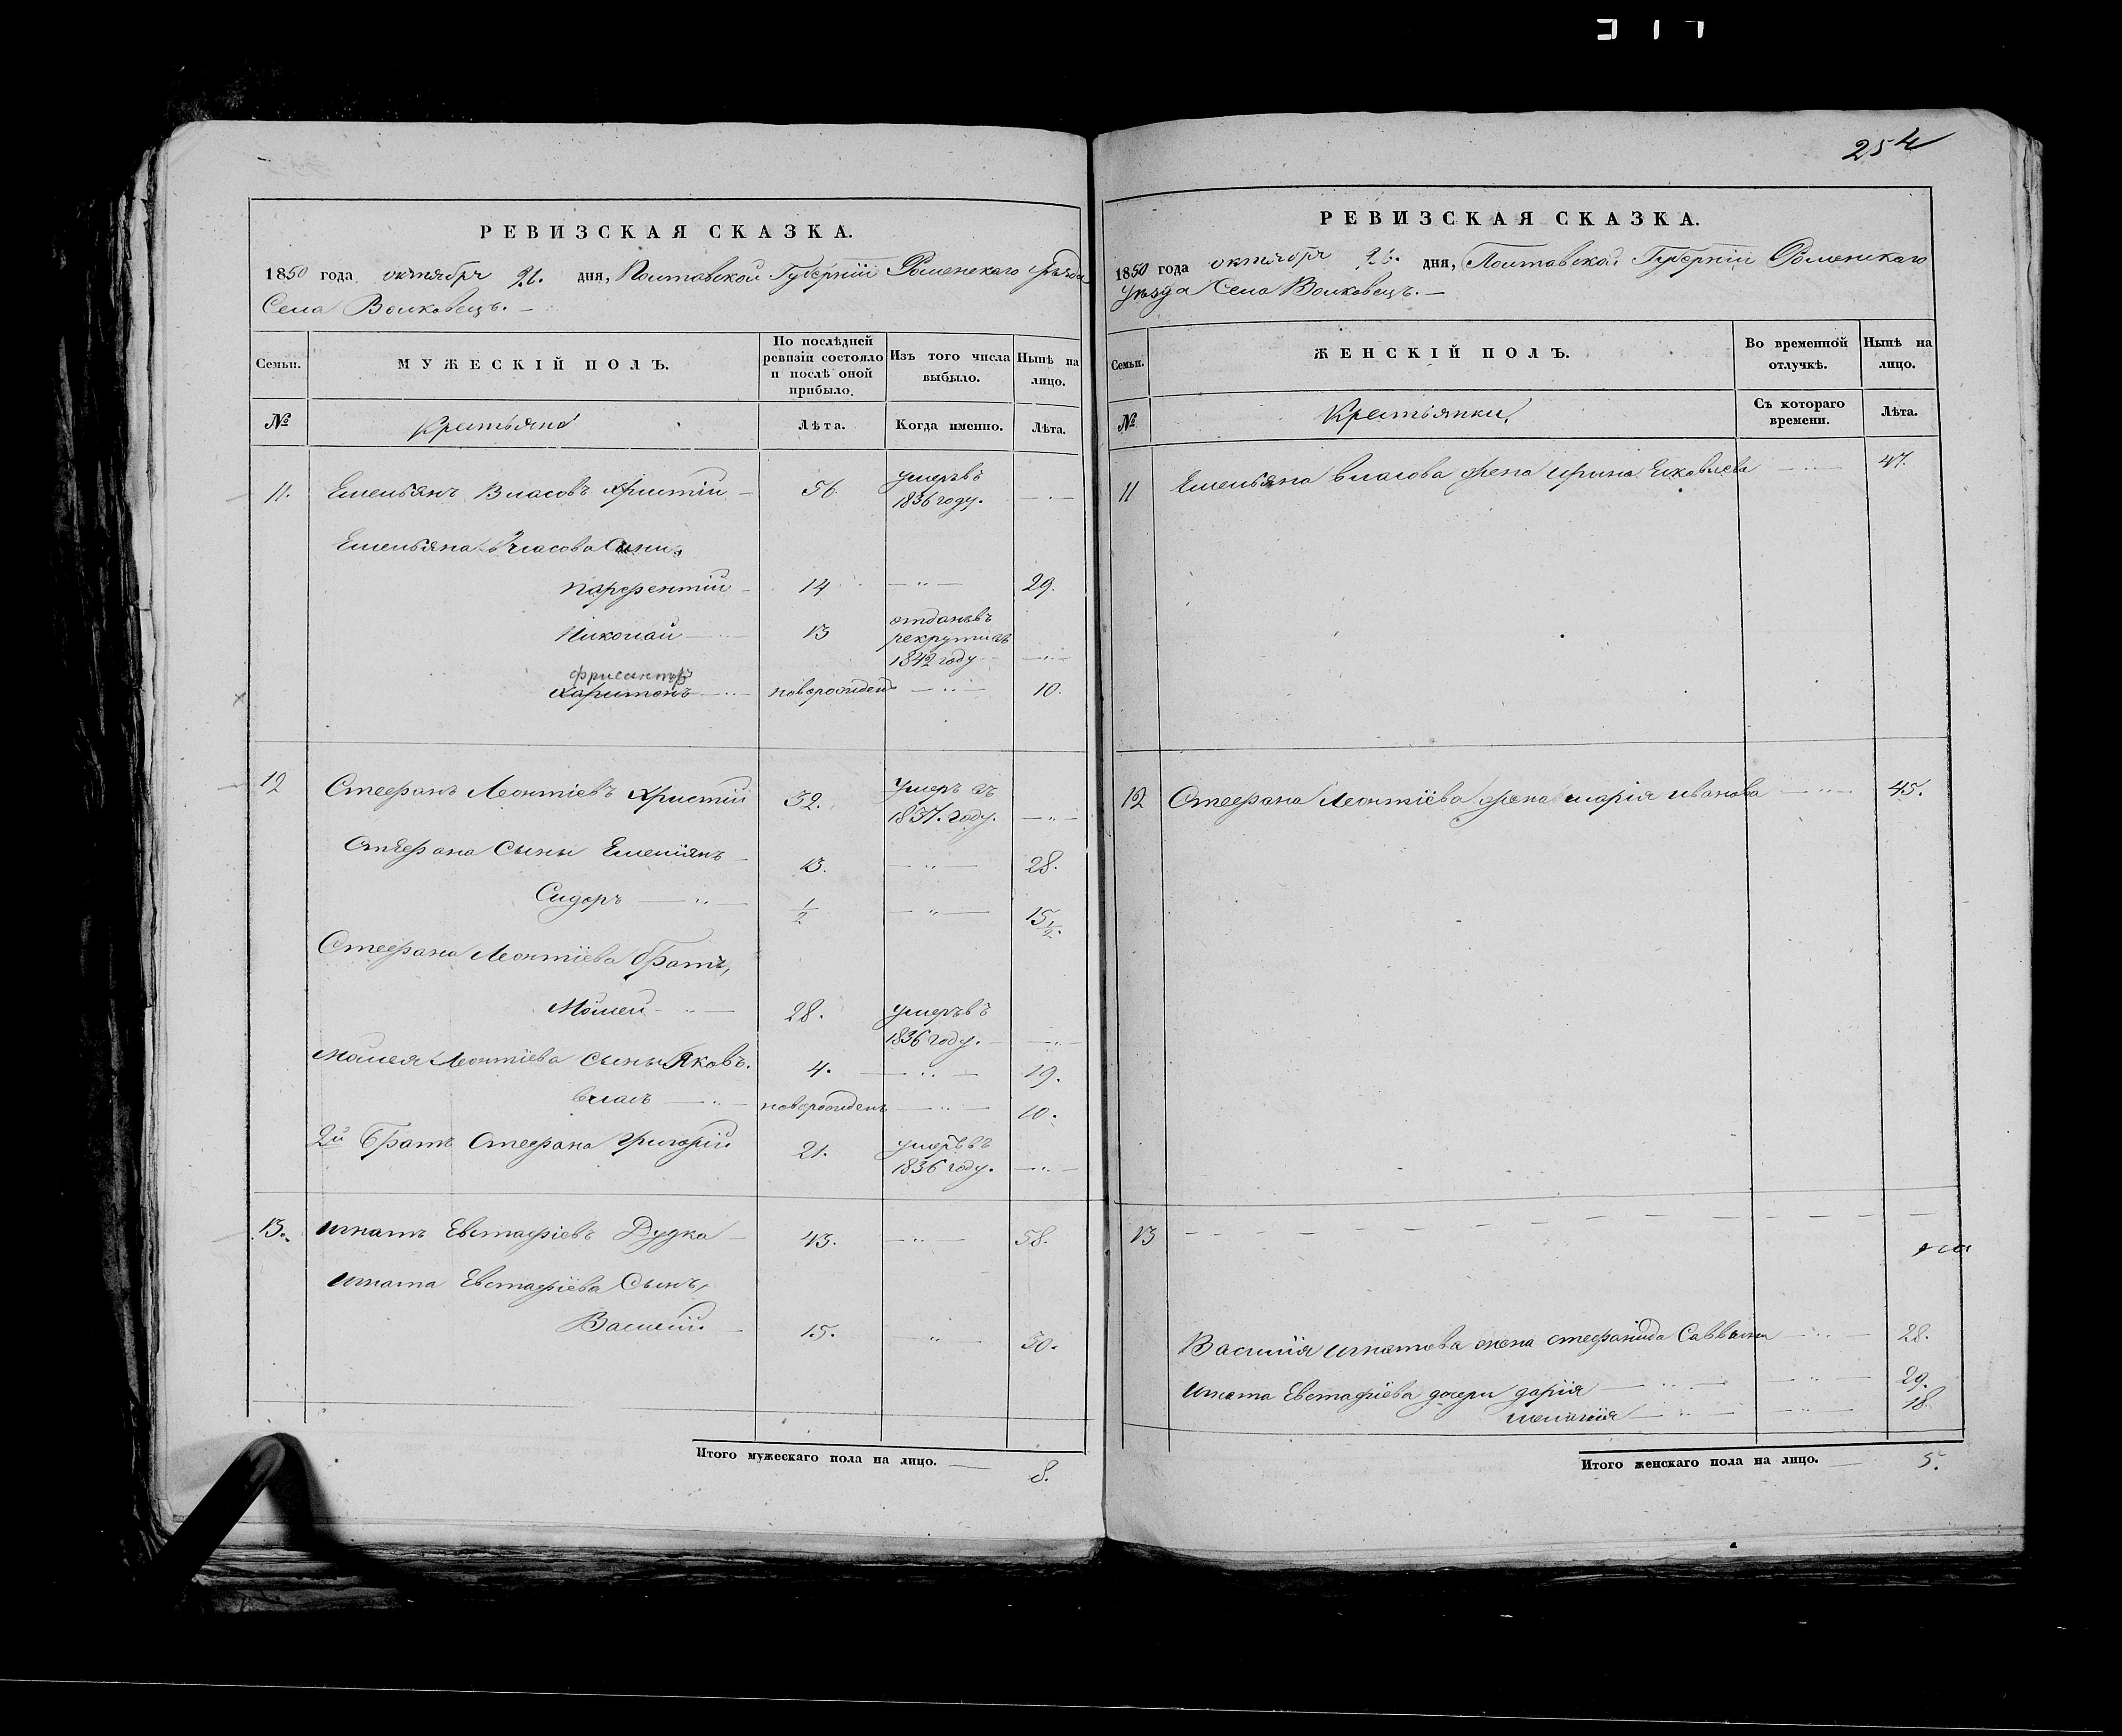 254
РЕВИЗСКАЯ СКАЗКА.
1850 года октября 26. дня, Полтавской Губерніи Роменскаго Уѣзда
Села Волковецъ. —
Семьи.
МУЖЕСКІЙ ПОЛЪ.
По послѣдней ревизіи состояло и послѣ оной прибыло.
Изъ того числа выбыло.
Нынѣ на лицо.
№
Крестьяне
Лѣта.
Когда именно.
Лѣта.
11. Емельянъ Власовъ Христій — 56 умеръ въ 1836 году. — " —
Емельяна Власова Сыны,
Парфентій — 14 — " — 29.
Николай — " — 13 отданъ въ рекруты въ 1842 году — " —
Харитонъ — " — новорожденъ — " — 10.
12 Стефанъ Леонтіевъ Христій 32. Умеръ въ 1837. году. — " —
Стефана Сыны Емеліянъ — 13. — " — 28.
Сидоръ — " — 1/2 — " — 15 1/2.
Стефана Леонтіева Братъ,
Мойсей — " — 28. умеръ въ 1836 году. — " —
Мойсея Леонтіева сыны Яковъ. 4. — " — 19.
Власъ — " — новорожденъ — " — 10.
2й Братъ Стефана Григорій 21. умеръ въ 1836 году. — " —
13. Игнатъ Евстафіевъ Дудка — 43. — " — 58.
Игната Евстафіева Сынъ,
Василій — 15. — " — 30.
Итого мужескаго пола на лицо. — 8.
РЕВИЗСКАЯ СКАЗКА.
1850 года октября 26. дня, Полтавской Губерніи Роменскаго
Уѣзда Села Волковецъ. —
Семьи.
ЖЕНСКІЙ ПОЛЪ.
Во временной отлучкѣ.
Нынѣ на лицо.
№
Крестьянки,
Съ котораго времени.
Лѣта.
11 Емельяна Власова жена Ирина Яковлева — " — 47.
12 Стефана Леонтіева жена Марія Иванова — " — 45.
13 — — — —
Василія Игнатова жена Стефанида Саввина — " — 28.
Игната Евстафіева дочери Дарія — " — 29.
Меланія — " — 18.
Итого женскаго пола на лицо. — 5.